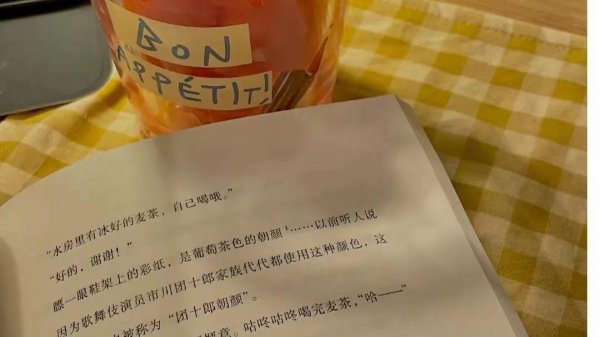 BON
APPÉTIT!
“水房里有冰好的麦茶，自己喝哦。”
“好的，谢谢！”
瞟一眼鞋架上的彩纸，是葡萄茶色的朝颜¹……以前听人说
因为歌舞伎演员市川团十郎家族代代都使用这种颜色，这
被称为“团十郎朝颜”。
惬意。咕咚咕咚喝完麦茶，“哈——”